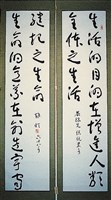 生活的目的在增進人類
全體之生活
生命的意義在創造宇宙
繼起之生命